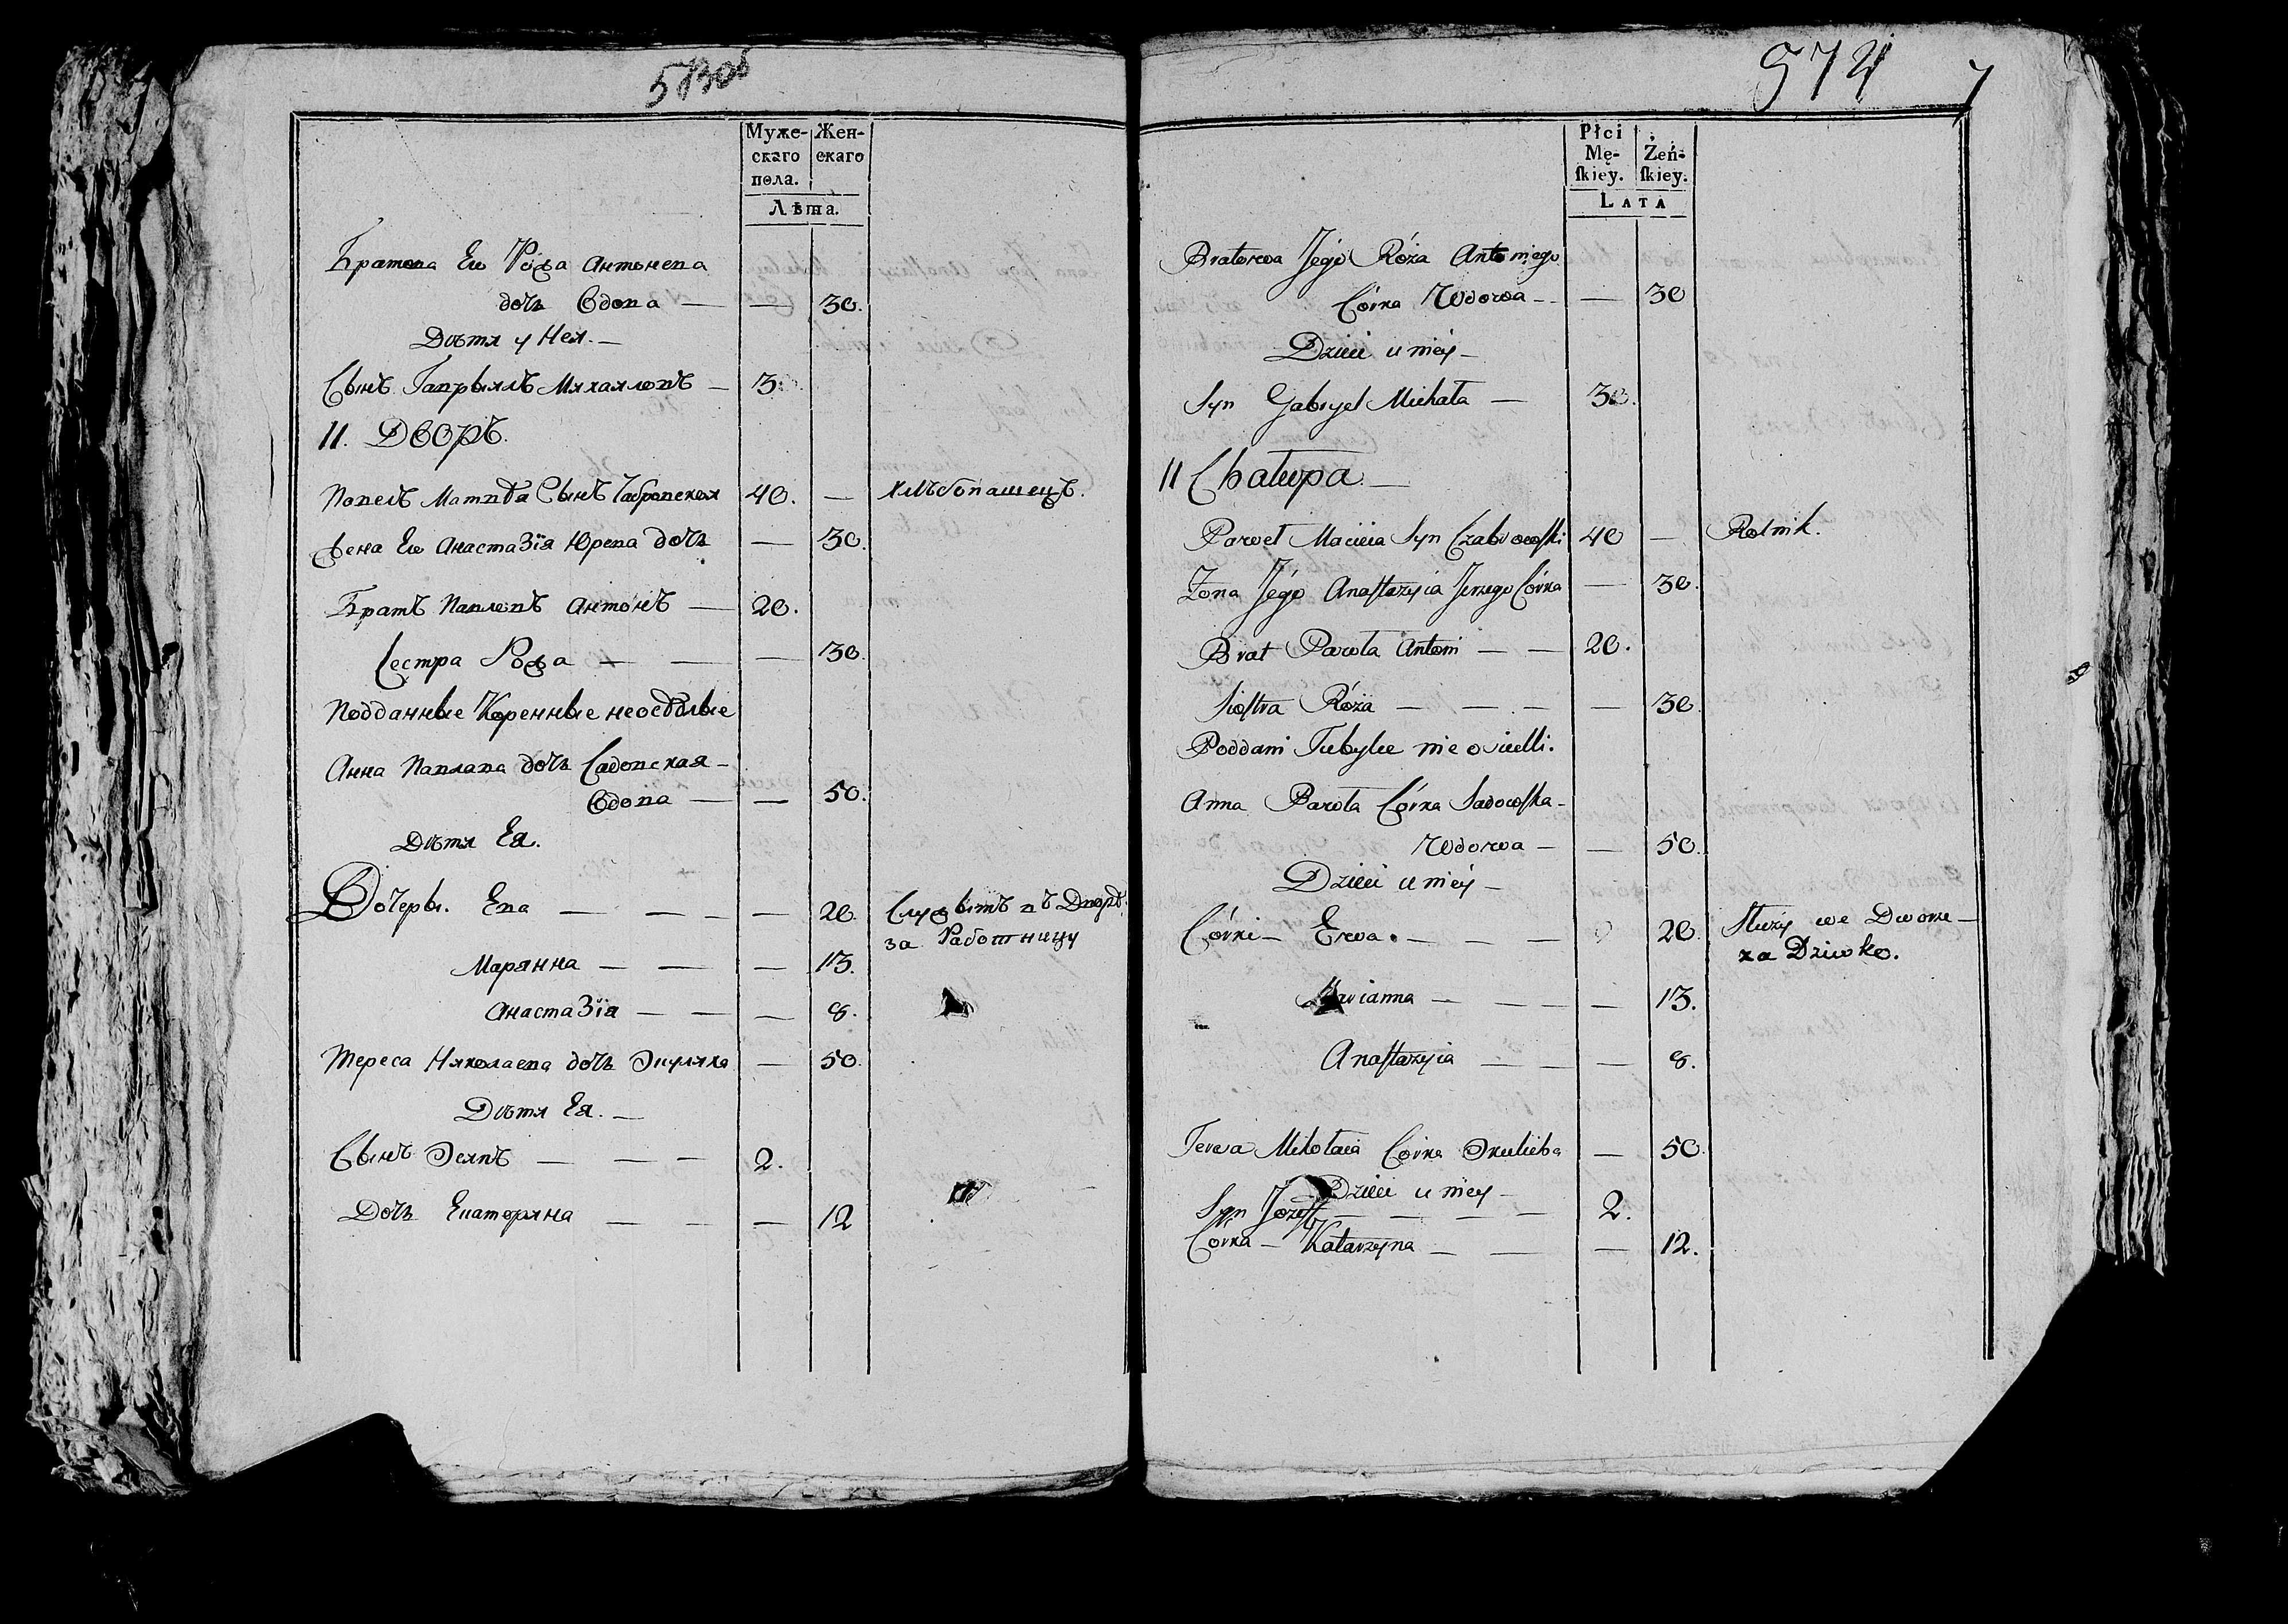 573об
Муже- Жен-
скаго скаго
пола.
Лѣта.
Братова Ею Рожа Антонева
дочь Вдова — — 30.
Дѣти у Нея. —
Сынъ Гапрыилъ Михаиловъ — 3
11. ДВОРЪ.
Павелъ Матвѣя Сынъ Чабровский 40. — Хлѣбопашецъ.
Жена Ею Анастазїя Юрева дочь — 30.
Братъ Павловъ Антонъ — 20.
Сестра Рожа — — — 30.
Подданные Коренные неосѣдлые
Анна Павлава дочь Садовская —
Вдова — — 50.
Дѣти Ея.
Дочеры. Ева — — — — 20. Служытъ въ Дворѣ
за Работницу
Марянна — — — 13.
Анастазїя — — — 8.
Тереса Николаева дочь Экулиха — 50.
Дѣти Ея. —
Сынъ Осипъ — — — 2.
Дочь Екатерина — — — 12
574 7
Płci
Mę- Żeń-
ſkiey. ſkiey.
LATA
Bratowa Jégo Róża Antoniego
Córka Wdowa — — 30
Dzieci u niéy —
Syn Gabryel Michała — 30.
11 Chałupa. —
Paweł Macieia Syn Czabrowſki 40 — Rolnik.
Żona Jégo Anaſtazyia Jerzego Córka — 30.
Brat Pawła Antoni — — 20.
Sioſtra Róża — — — — 30.
Poddani Tubylce nie osiedli.
Anna Pawła Córka Sadowſka —
Wdowa — — 50.
Dzieci u niéy —
Córki — Ewa. — — — 20. Służy we Dworze —
za Dziwko.
Marianna — — — — 13.
Anaſtazyia — — — 8.
Teresa Mikołaia Córka Ekulicha — 50.
Dzieci u niey —
Syn Jozeff — — — — 2.
Córka — Katarzyna — — — 12.